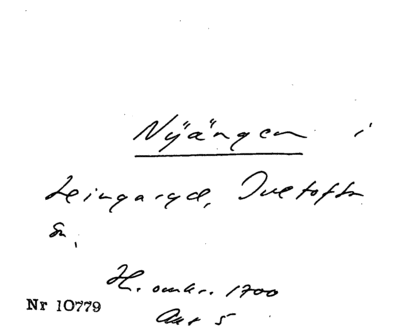 Nyängen i
Heingaryd, Ovetofta
sn.
H. omkr. 1700
Nr 10779